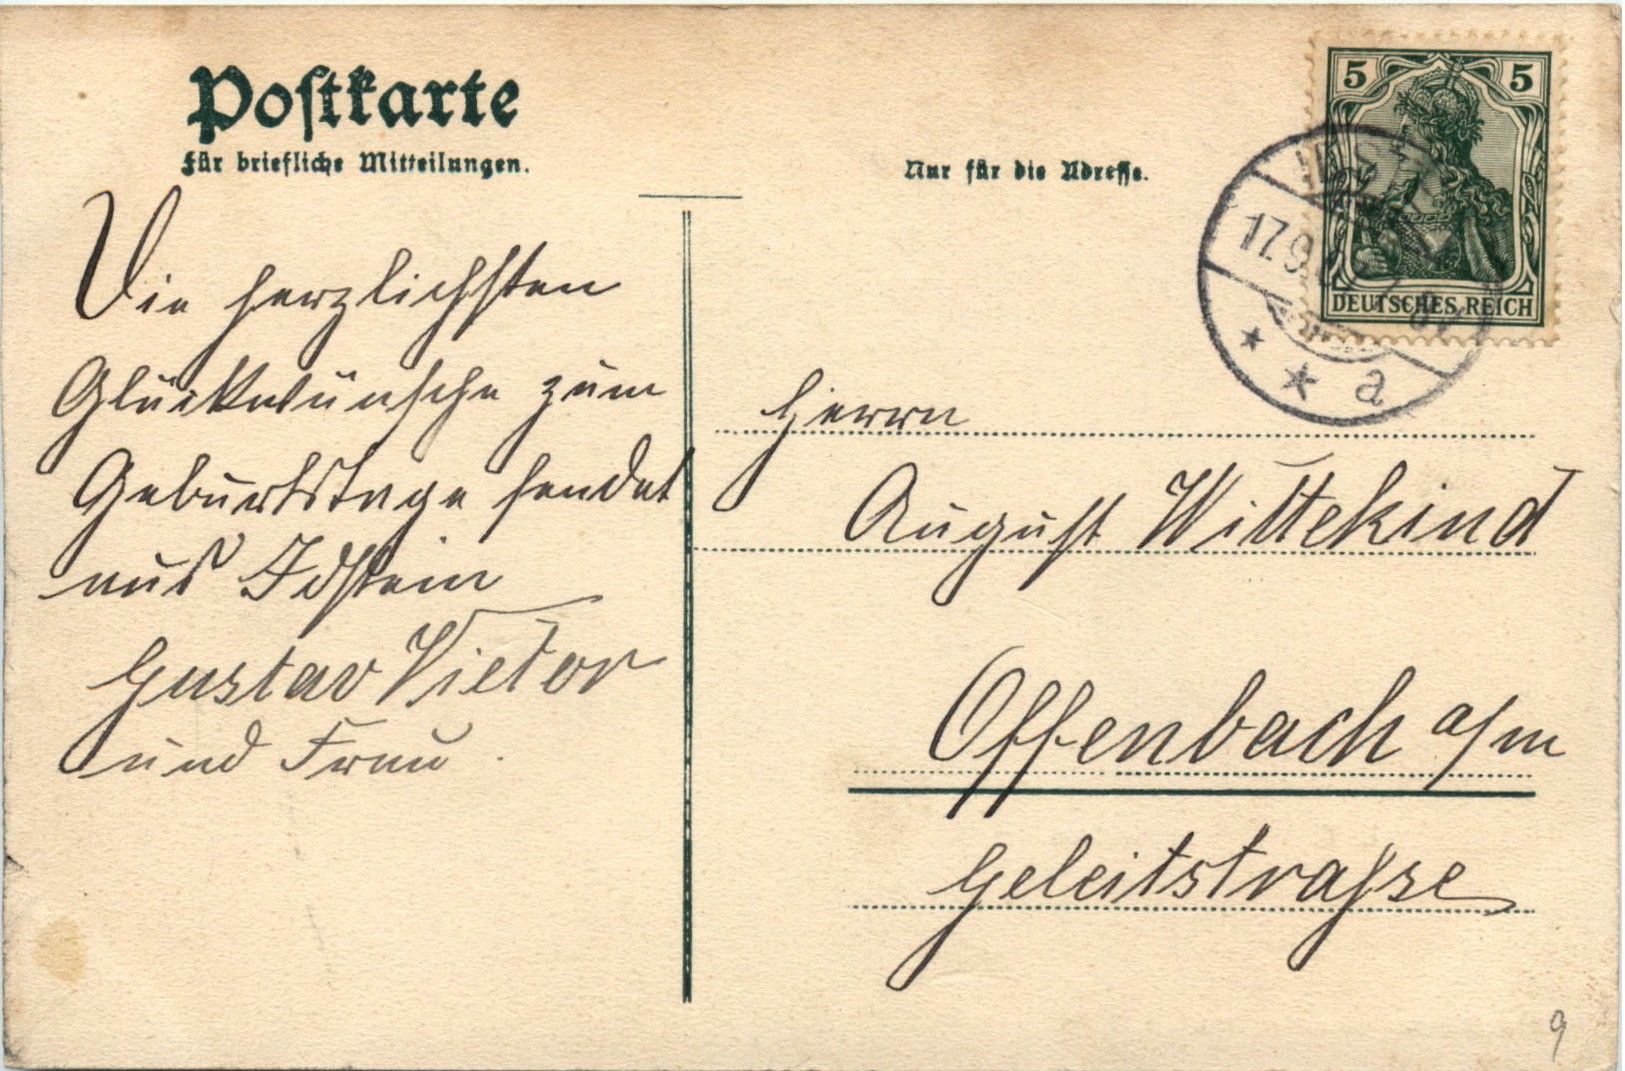 Postkarte
für briefliche Mitteilungen.
Nur für die Adresse.
5 5
DEUTSCHES REICH
17.9.
a
Die herzlichsten
Glückwünsche zum
Geburtstage sendet
aus Idstein
Gustav Vietor
und Frau.
Herrn
August Wittekind
Offenbach a/m
Geleitstraße
9